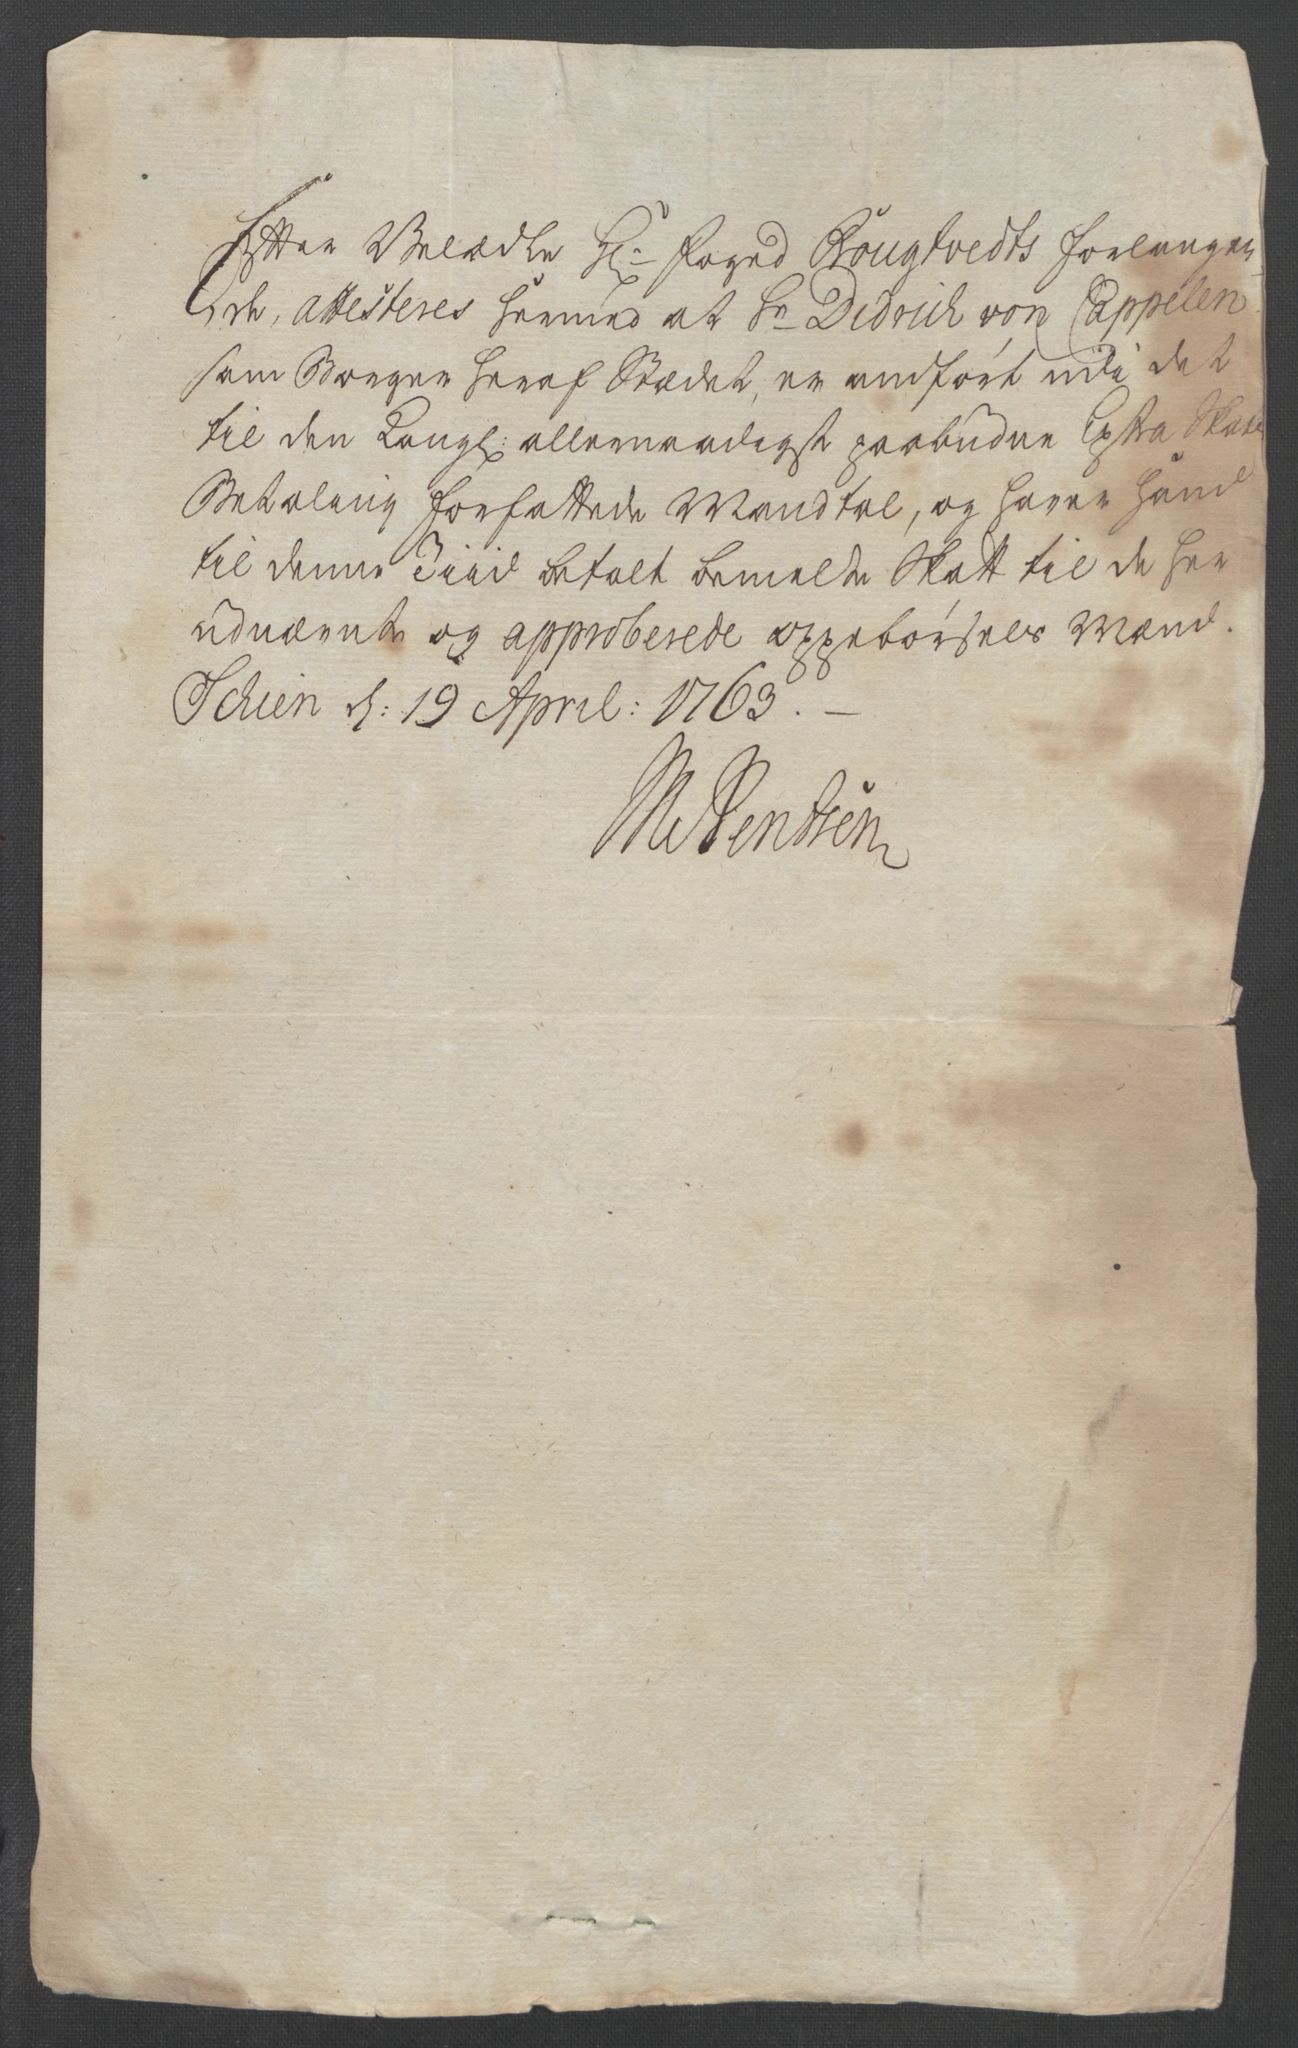 Efter Velædle Hr: Foged Rougtvedts forlangen-
de, attesteres hermed at Hr Didrich von Cappelen
som Borger heraf Stædet, er andført udi det
til den Kongl: allernaadigst paabudne Extra Skatts
Betaling forfattede Mandtal, og haver hand
til denne Tiid betalt bemelte Skatt til de her
udnævnte og approberede oppebørsels Mænd.
Schien d: 19 April: 1763. —
Bentsen